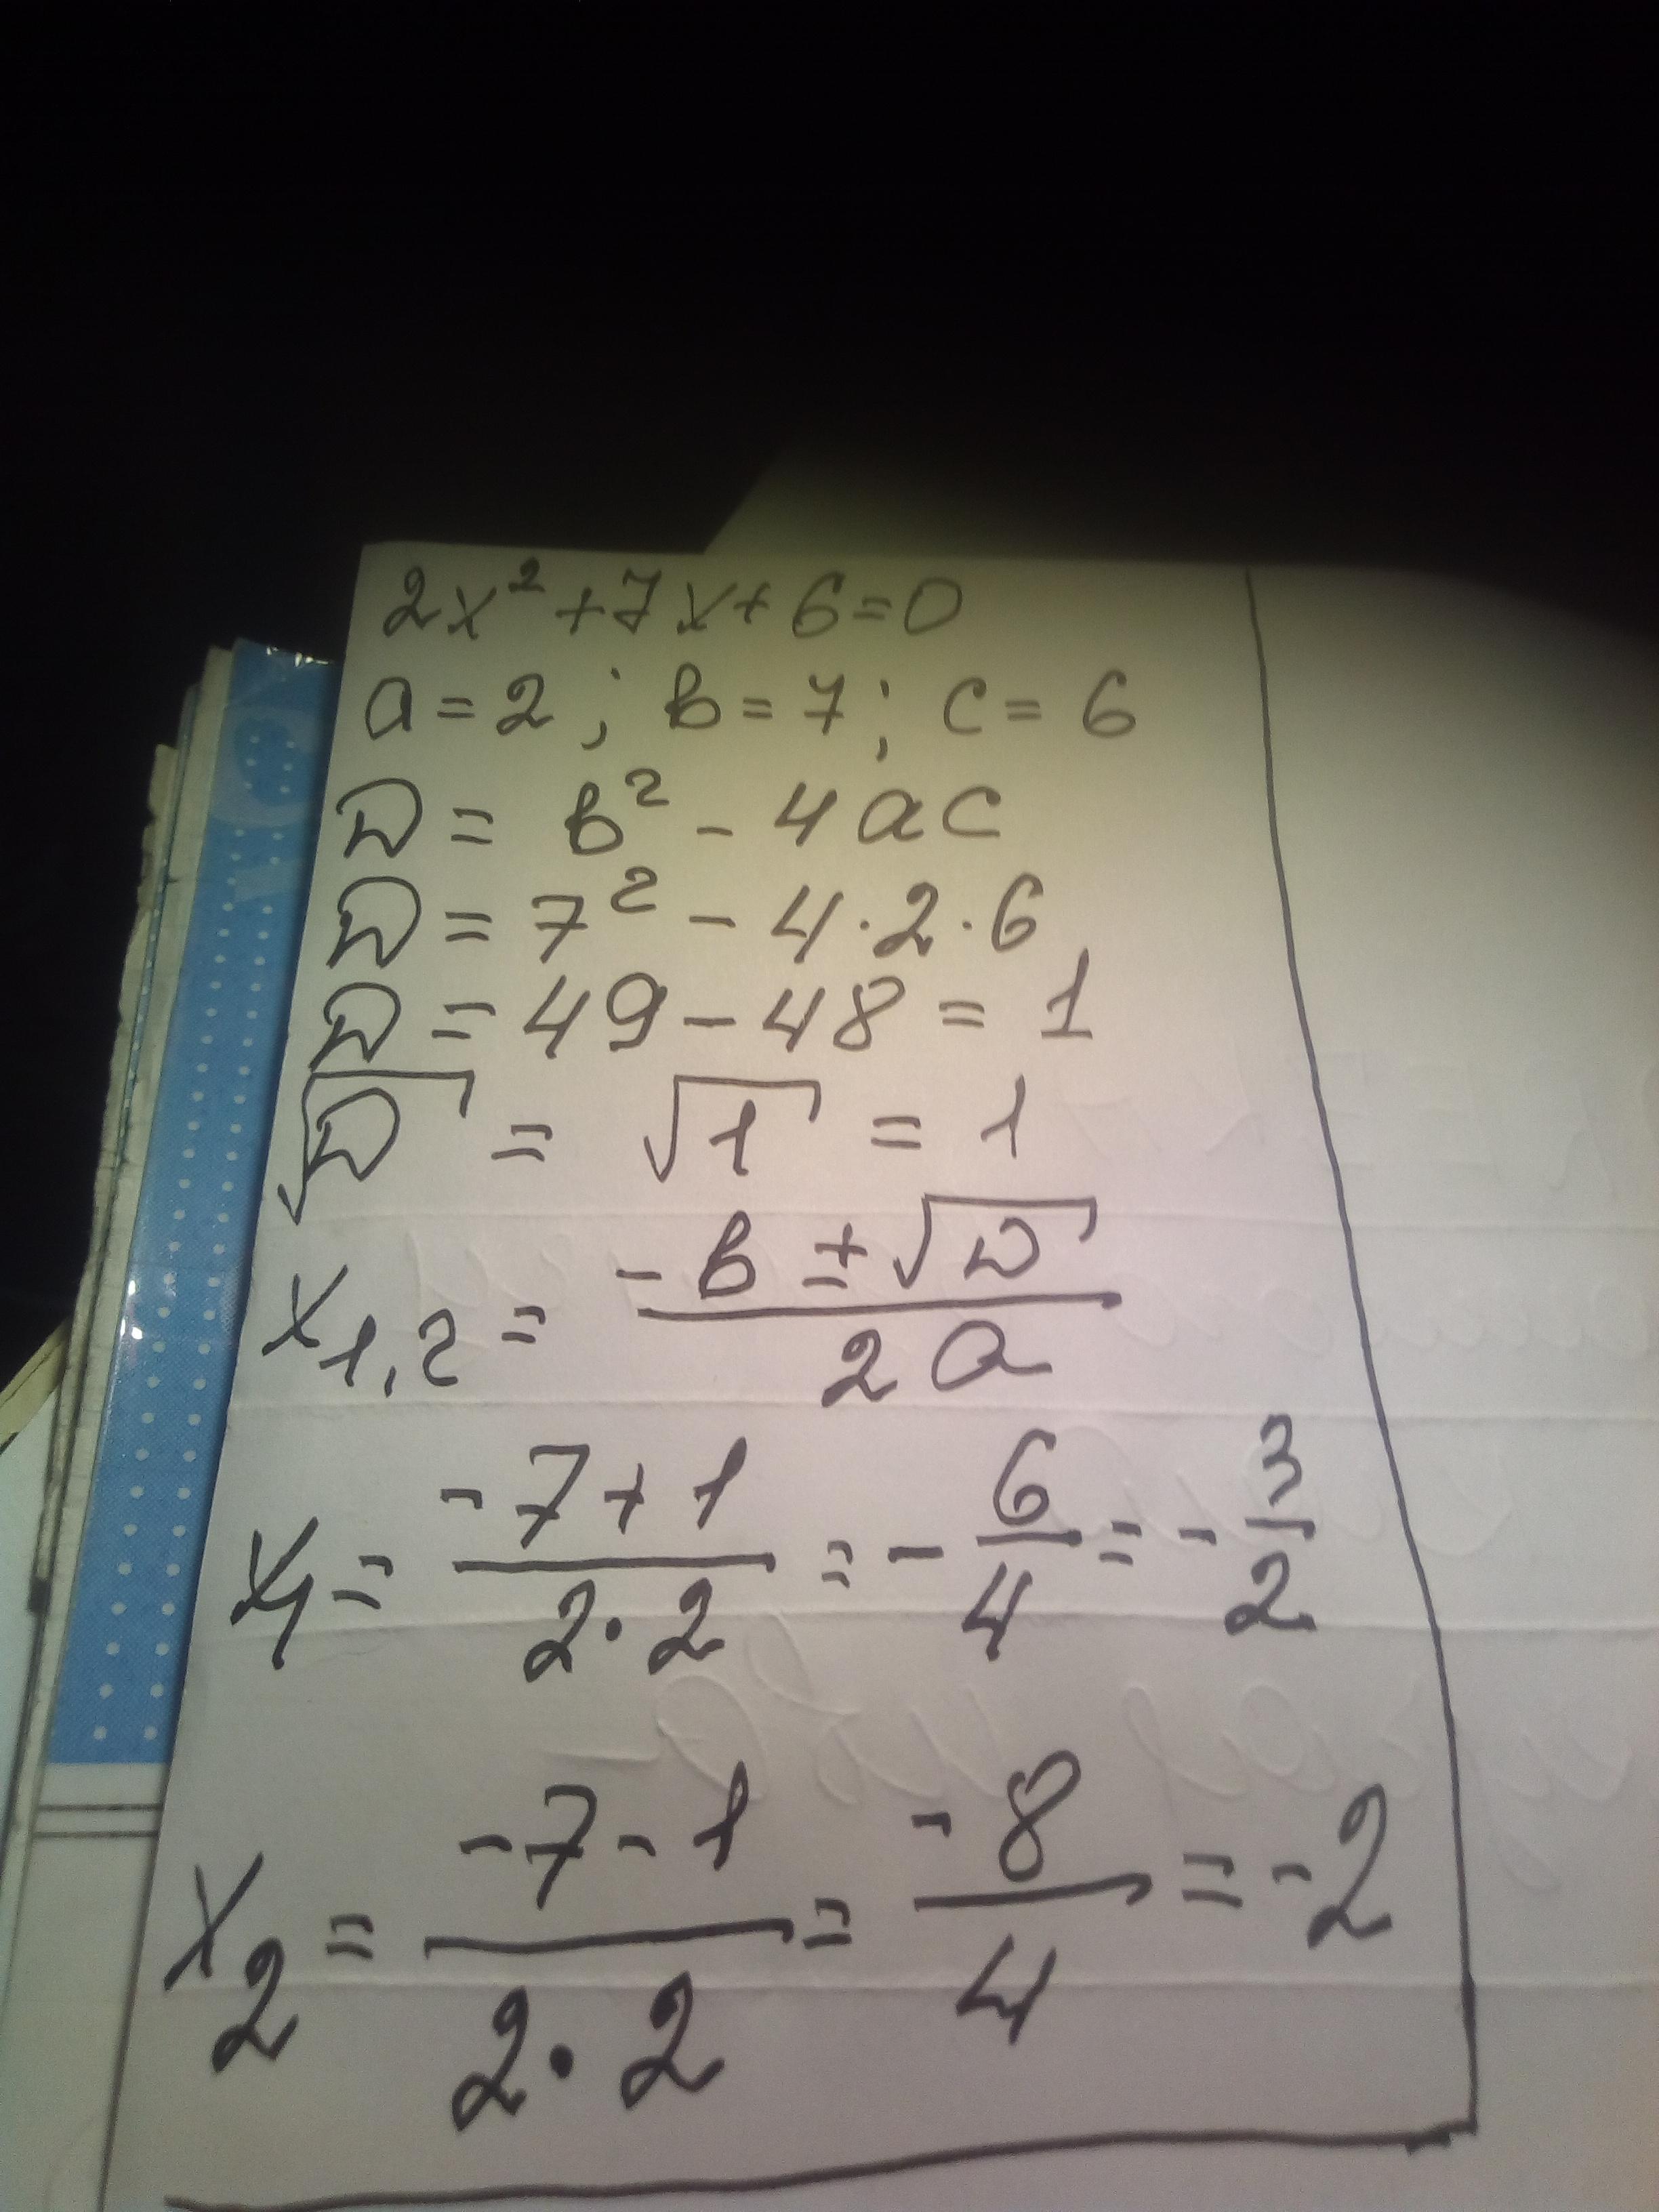 2x² + 7x + 6 = 0
a = 2 ; в = 7 ; c = 6
D = в² - 4ac
D = 7² - 4·2·6
D = 49 - 48 = 1
√D = √1 = 1
x₁,₂ = (-в ± √D) / (2a)
x₁ = (-7 + 1) / (2·2) = -6/4 = -3/2
x₂ = (-7 - 1) / (2·2) = -8/4 = -2